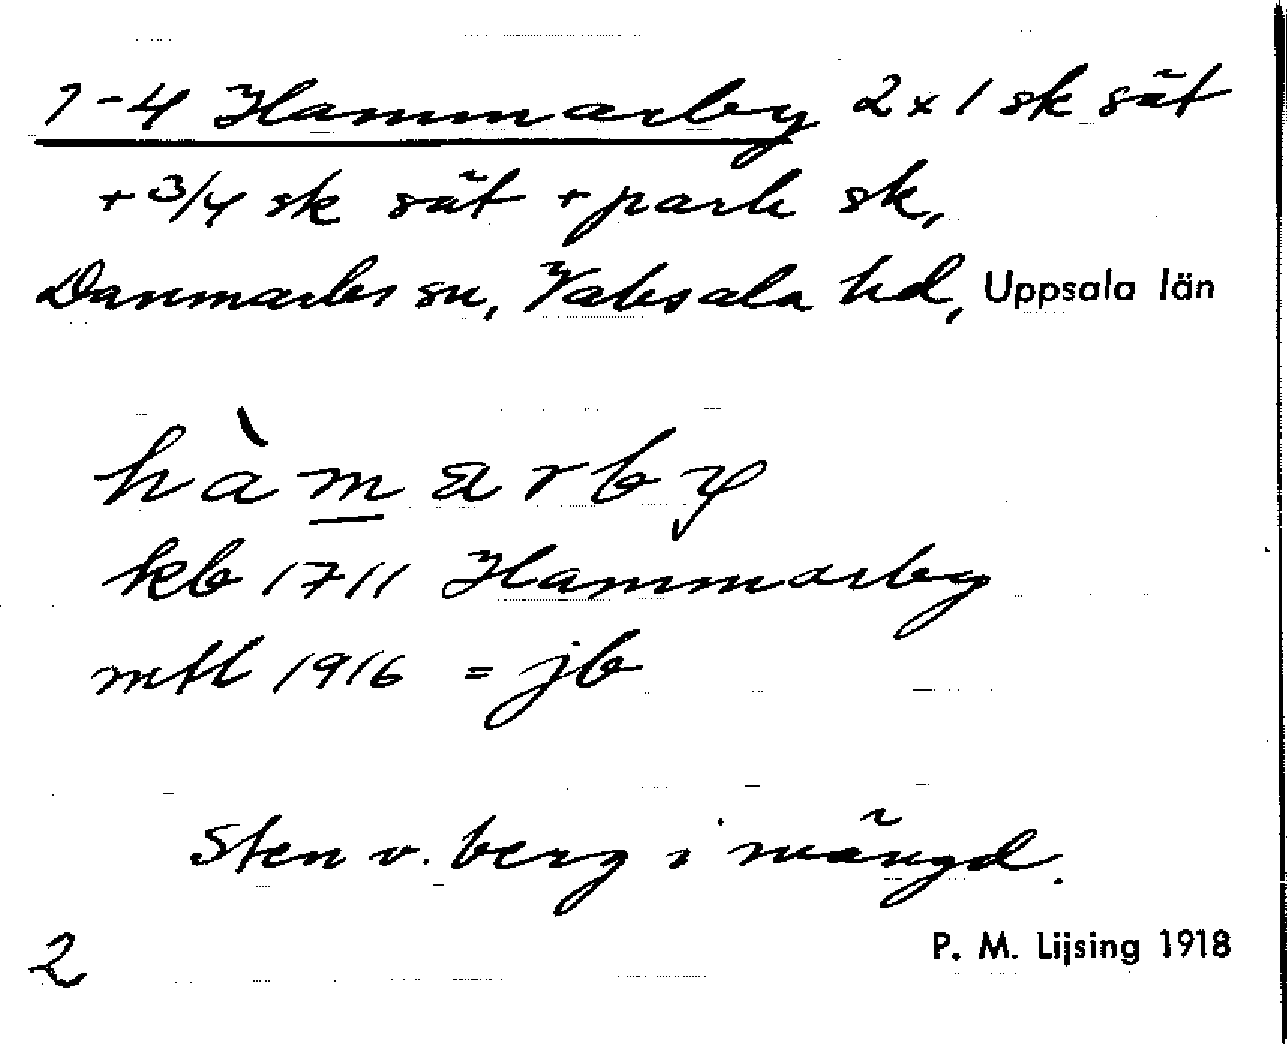 1-4 Hammarby 2 x 1 sk sät
+ 3/4 sk sät + park sk,
Danmarks sn, Vaksala hd, Uppsala län
hàmarby
kb 1711 Hammarby
mtl 1916 = jb
Sten o. berg i mängd.
2 P. M. Lijsing 1918